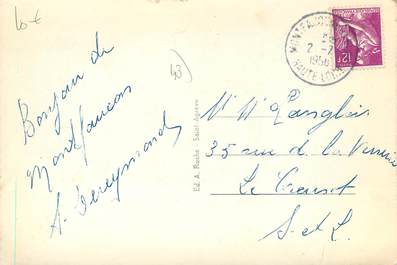 10 €
43
Bonjour de
Montfaucon
MONTFAUCON
2-7
1956
HAUTE LOIRE
12F
Ed. A. Roche - Saint-Agrève
Mr Mr Langlois
35 rue de la Verrerie
Le Creusot
S. et L.